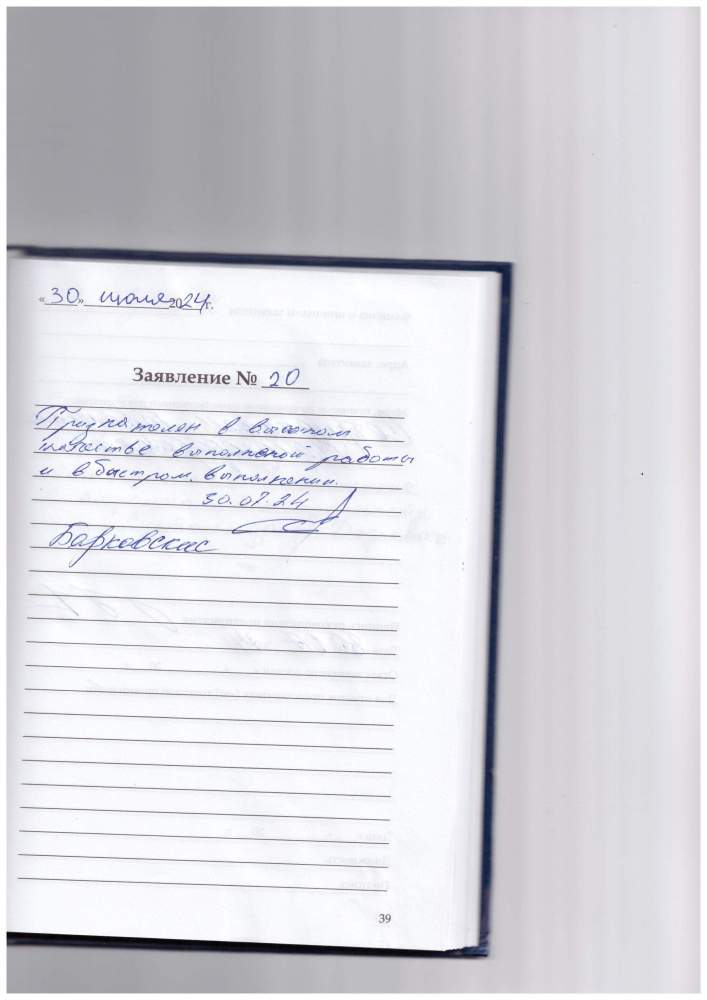 «30» июля 2024г.
Заявление № 20
Признателен в высоком
качестве выполненой работы
и в быстром выполнении.
30.07.24
Барковский
39